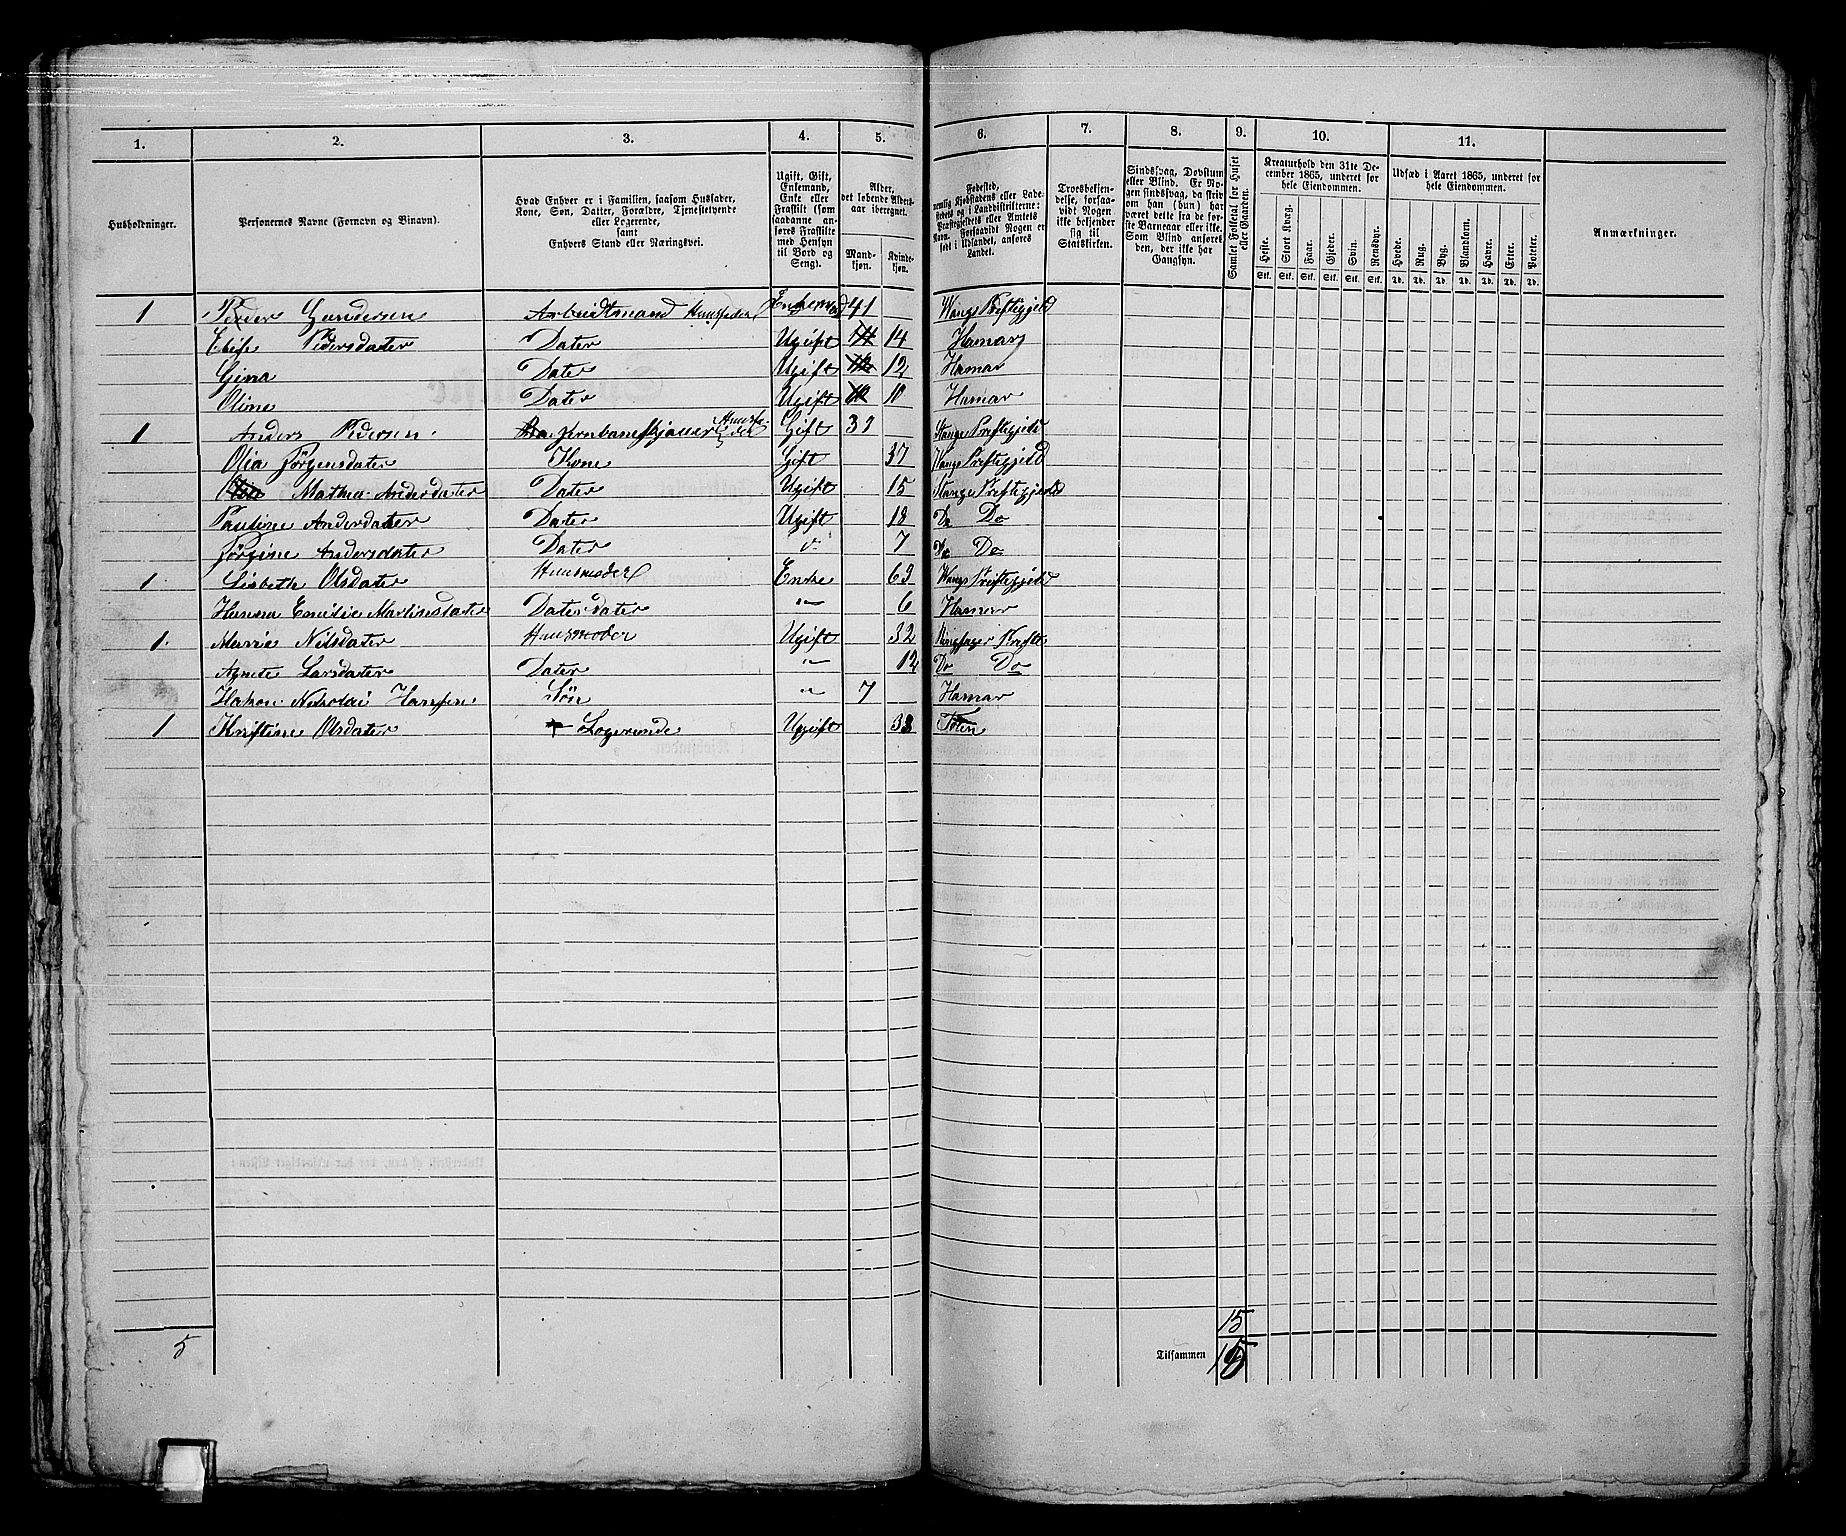 1. 2. 3. 4. 5. 6. 7. 8. 9. 10. 11.
Husholdninger.
Personernes Navne (Fornavn og Binavn).
Hvad Enhver er i Familien, saasom Husfader,
Kone, Søn, Datter, Forældre, Tjenestetyende
eller Logerende,
samt
Enhvers Stand eller Næringsvei.
Ugift, Gift,
Enkemand,
Enke eller
Fraskilt (som
saadanne an-
føres Fraskilte
med Hensyn
til Bord og
Seng).
Alder,
det løbende Alders-
aar iberegnet.
Mand-
kjøn.
Kvinde-
kjøn.
Fødested,
nemlig Kjøbstadens eller Lade-
stedets og i Landdistrikterne:
Præstegjeldets eller Amtets
Navn. Forsaavidt Nogen er
født i Udlandet, anføres
Landet.
Troesbekjen-
delse, forsaa-
vidt Nogen
ikke bekjender
sig til
Statskirken.
Sindssvag, Døvstum
eller Blind. Er No-
gen sindssvag, da skriv
om han (hun) har
været dette fra de før-
ste Barneaar eller ikke.
Som Blind anføres
den, der ikke har
Gangsyn.
Samlet Folketal for Huset
eller Gaarden.
Kreaturhold den 31te De-
cember 1865, underet for
hele Eiendommen.
Heste. Stort Kvæg. Faar. Gjeder. Svin. Rensdyr.
Stk. Stk. Stk. Stk. Stk. Stk.
Udsæd i Aaret 1865, underet for
hele Eiendommen.
Hvede. Rug. Byg. Blandkorn. Havre. Erter. Poteter.
Td. Td. Td. Td. Td. Td. Td.
Anmærkninger.
1 Peder Gundersen Arbeidtsmand Huusfader Enkemad 41 Wangs Prestegjeld
Elise Pedersdater Dater Ugift 14 Hamar
Gina Dater Ugift 12 Hamar
Oline Dater Ugift 10 Hamar
1 Anders Pedersen. Jernbaneskjører Huusfader Gift 33 Stange Prestegjeld
Olia Jørgensdater Kone Gift 37 Wangs Prestegjeld
Mathea Andersdater Dater Ugift 15 Stange Prestegjeld
Pauline Andersdater Dater Ugift 18 Do Do
Jørgine Andersdater Dater " 7 Do Do
1. Lisbeth Olsdater Huusmoder Enke 63 Wangs Prestegjeld
Hanna Emilie Martinsdater Datersdater " 6 Hamar
1. Marie Nilsdater Huusmoder Ugift 32 Ringsager Prest
Agnete Larsdater Dater " 12 Do Do
Hakon Nikolai Hansen. Søn " 7 Hamar
1 Kristine Olsdater Logerende Ugift 38 Toten
15
5 Tilsammen 15